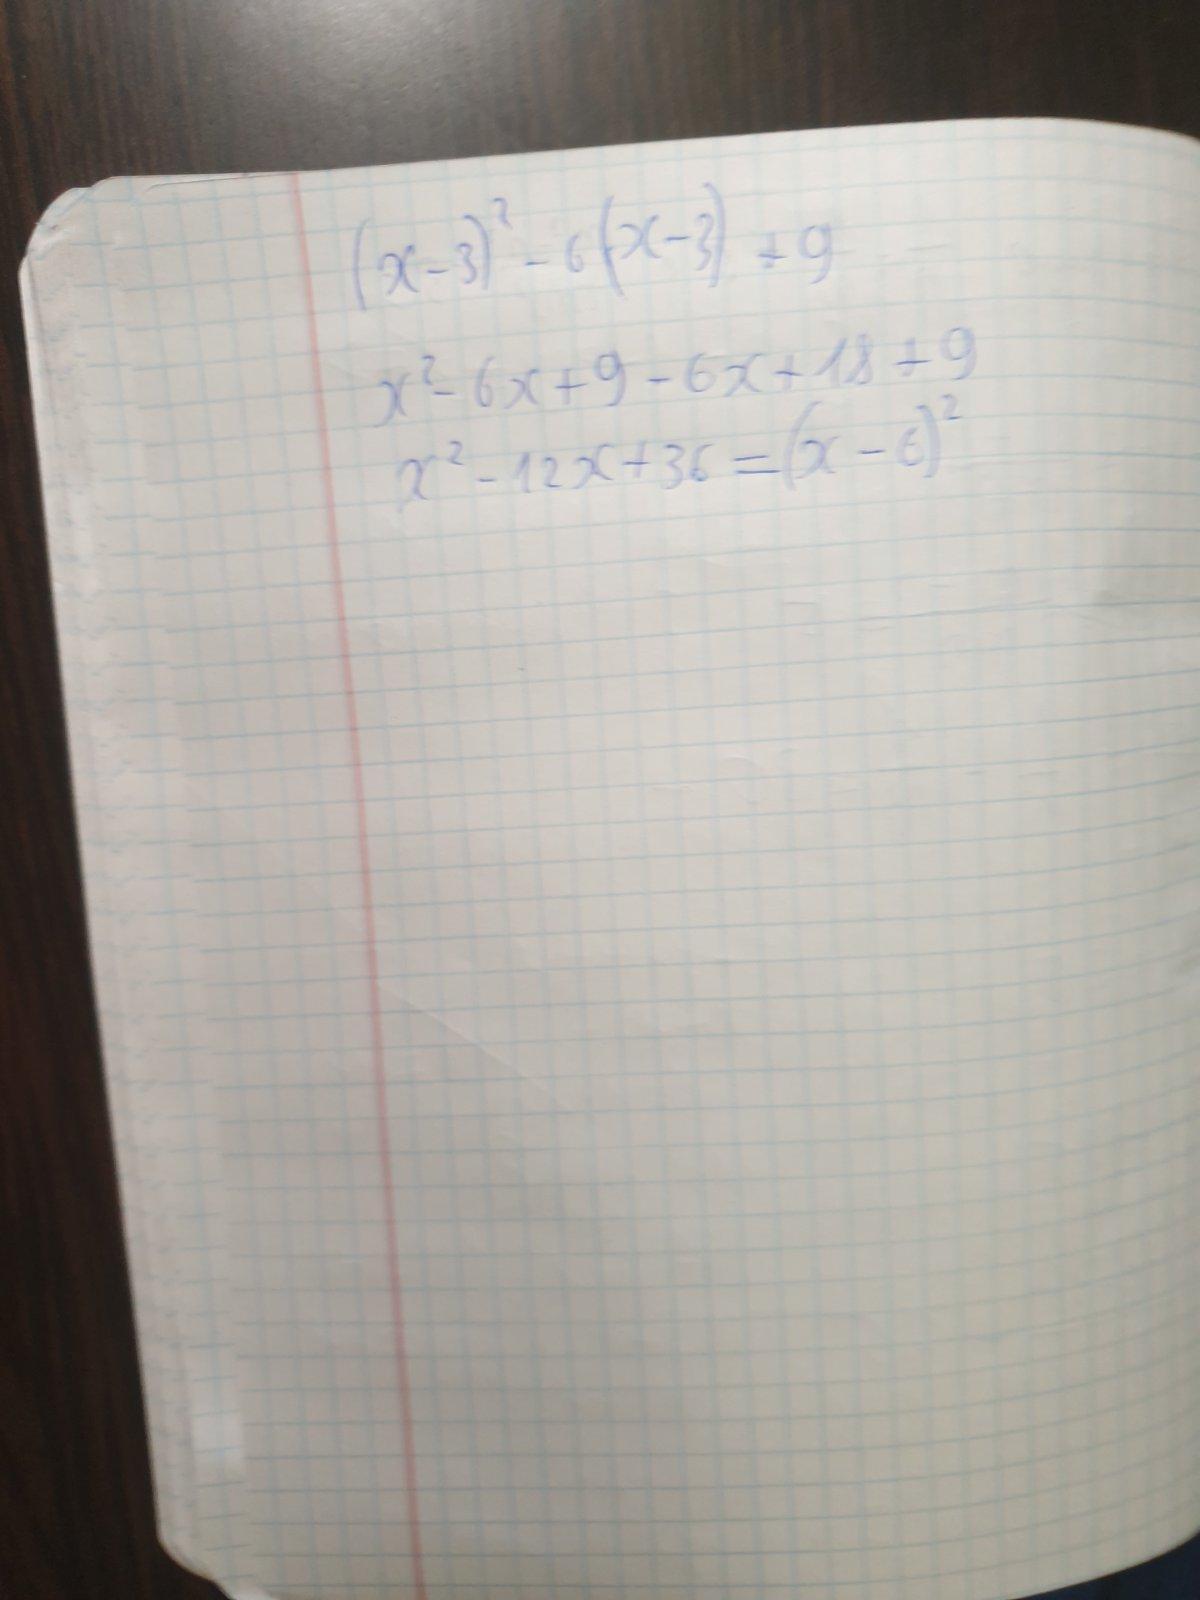 (x-3)² - 6(x-3) + 9
x² - 6x + 9 - 6x + 18 + 9
x² - 12x + 36 = (x - 6)²